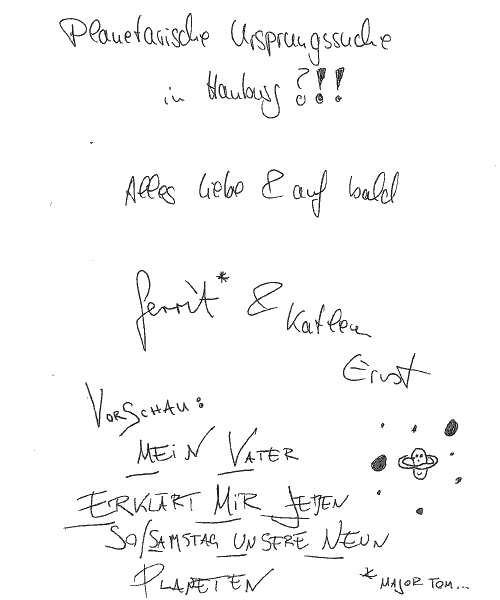 Planetarische Ursprungssuche
in Hamburg ?!!
Alles liebe & auf bald
Gerrit* & Kathleen
Ernst
VORSCHAU:
MEIN VATER
ERKLÄRT MIR JEDEN
SO/SAMSTAG UNSERE NEUN
PLANETEN
* MAJOR TOM...